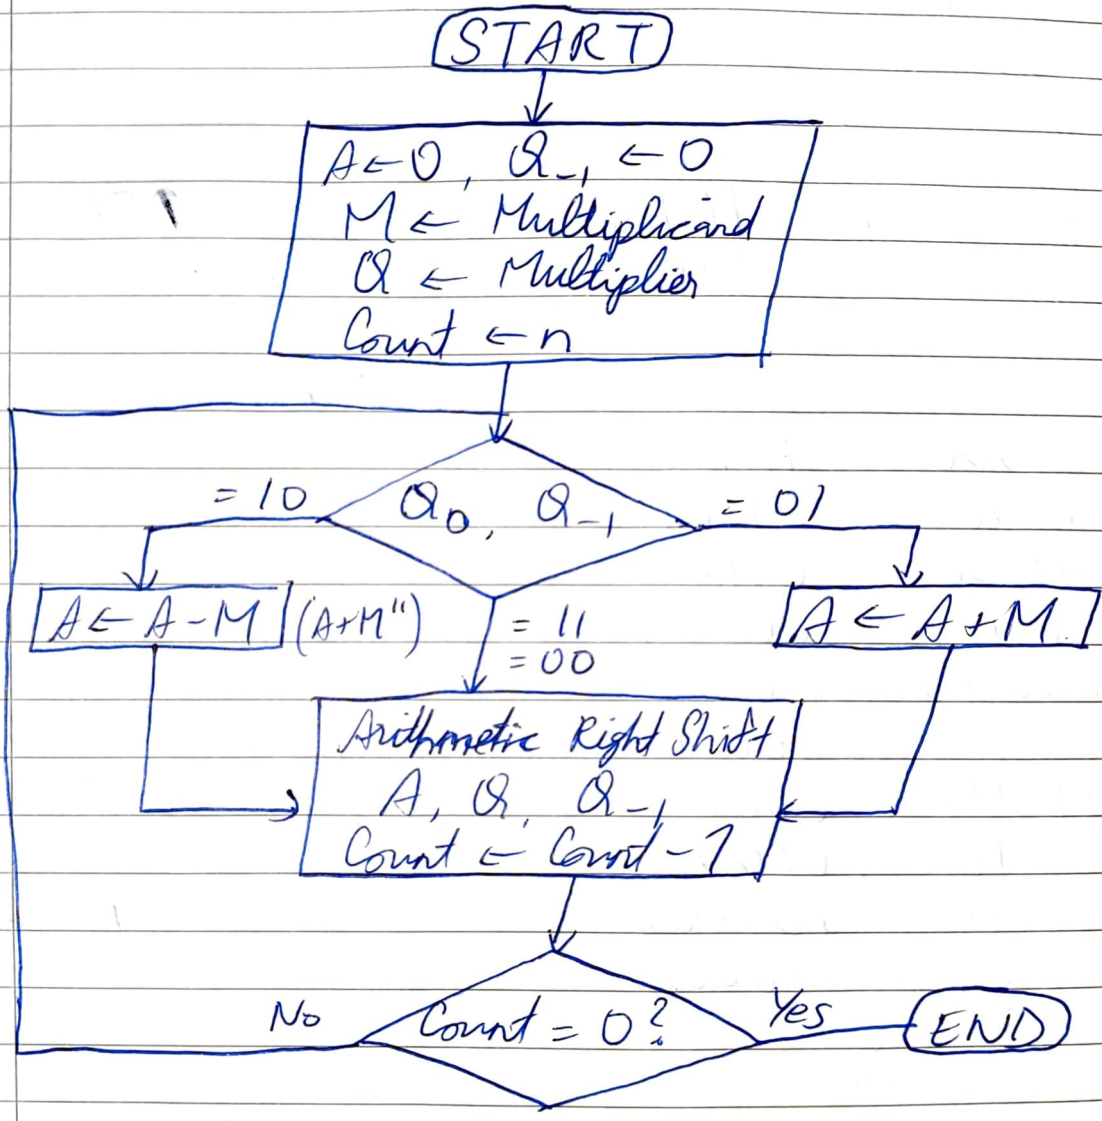 START
A ← 0, Q₋₁ ← 0
M ← Multiplicand
Q ← Multiplier
Count ← n
= 10
Q₀, Q₋₁
= 01
A ← A - M (A+M")
= 11
= 00
A ← A + M
Arithmetic Right Shift
A, Q, Q₋₁
Count ← Count - 1
No
Count = 0?
Yes
END